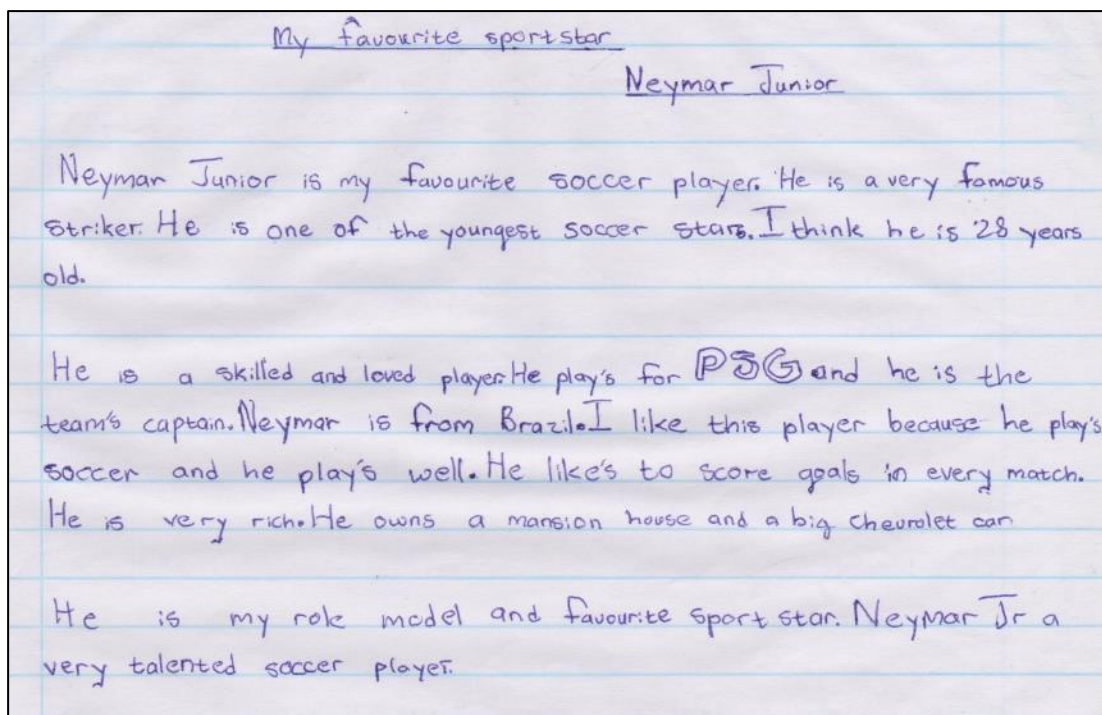 My favourite sportstar
Neymar Junior
Neymar Junior is my favourite soccer player. He is a very famous
striker. He is one of the youngest soccer stars. I think he is 28 years
old.
He is a skilled and loved player. He play's for PSG and he is the
team's captain. Neymar is from Brazil. I like this player because he play's
soccer and he play's well. He like's to score goals in every match.
He is very rich. He owns a mansion house and a big Chevrolet car
He is my role model and favourite sport star. Neymar Jr a
very talented soccer player.